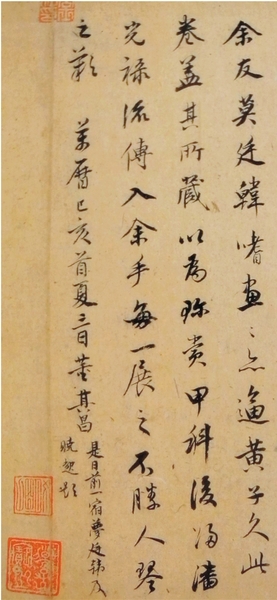 余友莫廷韓嗜畫畫亦逼黃子久此
卷蓋其所藏以為珍賞甲科後歸潘
光祿流傳入余手每一展之不勝人琴
之歎 萬曆己亥首夏三日董其昌
是日前一宿夢廷韓及
曉題